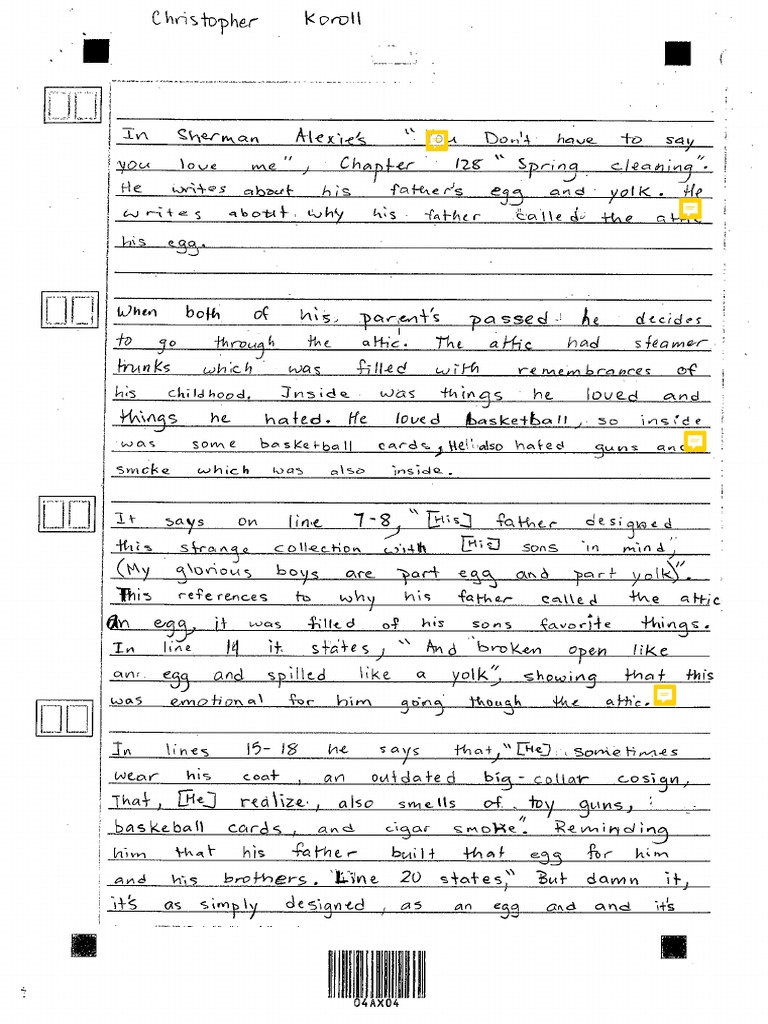 Christopher Koroll
In Sherman Alexie's " Don't have to say
you love me", Chapter 128 "Spring cleaning".
He writes about his father's egg and yolk. He
writes about why his father called the
his egg.
When both of his parent's passed he decides
to go through the attic. The attic had steamer
trunks which was filled with remembrances of
his childhood. Inside was things he loved and
things he hated. He loved basketball, so inside
was some basketball cards, He also hated guns and
smoke which was also inside.
It says on line 7-8, "[His] father designed
this strange collection with [His] sons in mind,
(My glorious boys are part egg and part yolk)".
This references to why his father called the attic
an egg, it was filled of his sons favorite things.
In line 14 it states, "And broken open like
an egg and spilled like a yolk", showing that this
was emotional for him going though the attic.
In lines 15-18 he says that, "[He] sometimes
wear his coat, an outdated big-collar cosign,
That, [He] realize, also smells of toy guns,
baskeball cards, and cigar smoke". Reminding
him that his father built that egg for him
and his brothers. Line 20 states," But damn it,
it's as simply designed, as an egg and and it's
04AX04